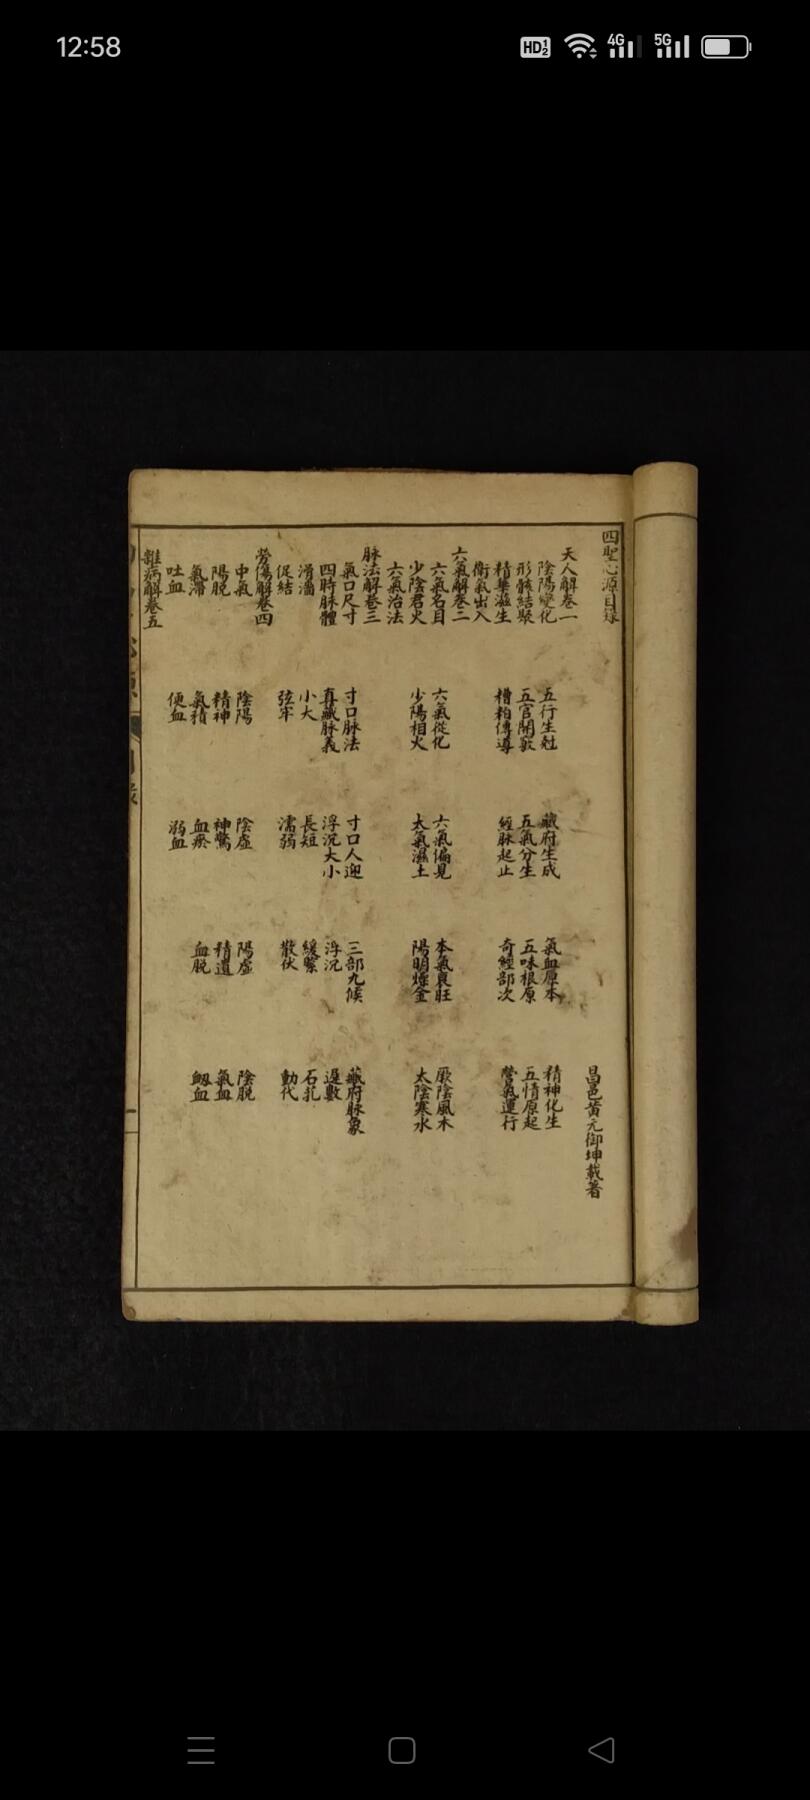 12:58
HD 1 2
4G
5G
四聖心源目錄
昌邑黃元御坤載著
天人解卷一
陰陽變化 五行生尅 藏府生成 氣血原本 精神化生
形骸結聚 五官開竅 五氣分生 五味根原 五情原起
精華滋生 糟粕傳導 經脉起止 奇經部次 營氣運行
衛氣出入
六氣解卷二
六氣名目 六氣從化 六氣偏見 本氣衰旺 厥陰風木
少陰君火 少陽相火 太氣濕土 陽明燥金 太陰寒水
六氣治法
脉法解卷三
氣口尺寸 寸口脉法 寸口人迎 三部九候 藏府脉象
四時脉體 真藏脉義 浮沉大小 浮沉 遲數
滑濇 小大 長短 緩緊 石芤
促結 弦牢 濡弱 散伏 動代
勞傷解卷四
中氣 陰陽 陰虛 陽虛 陰脫
陽脫 精神 神驚 精遺 氣血
氣滯 氣積 血瘀 血脫 衂血
吐血 便血 溺血
雜病解卷五